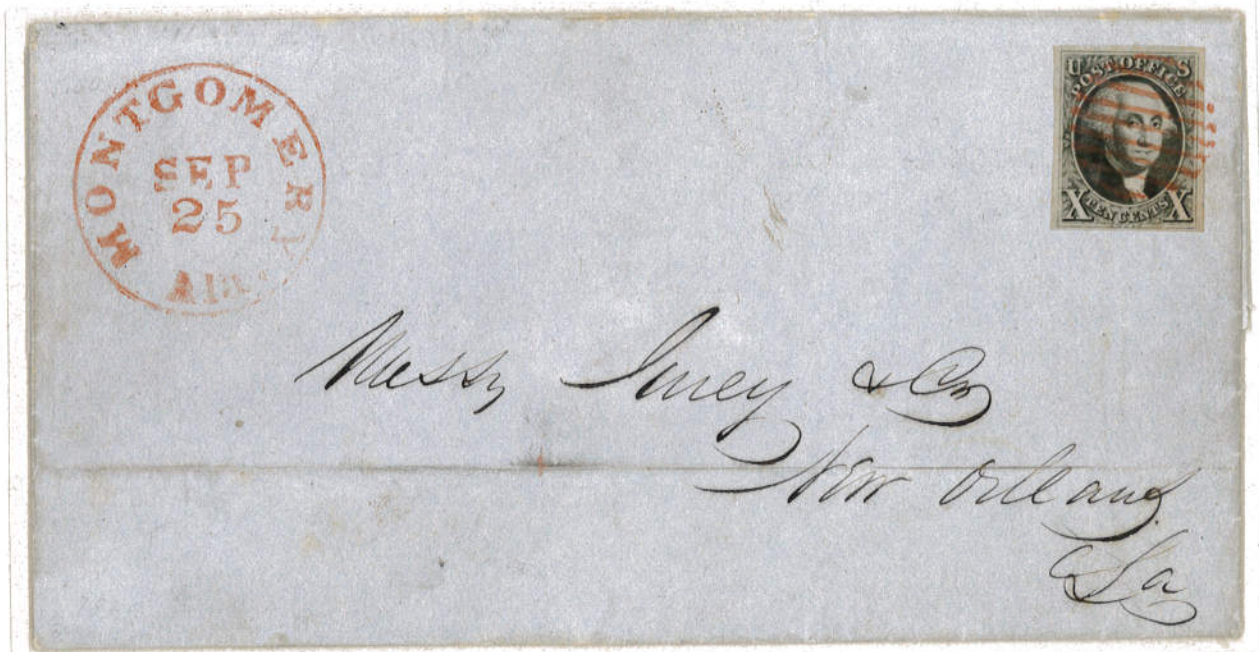 MONTGOMERY
SEP
25
Ala
U S
POST OFFICE
X TEN CENTS X
Messrs & Co
New Orleans
La